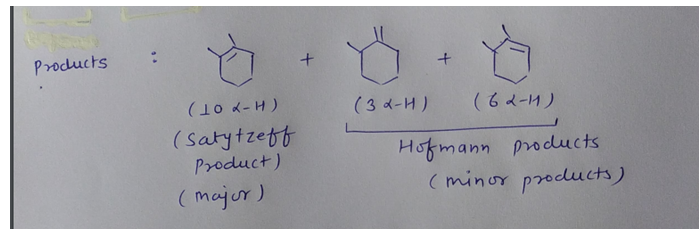 Products : + +
(10 α-H) (3 α-H) (6 α-H)
(Satytzeff
Product)
(major)
Hofmann products
(minor products)